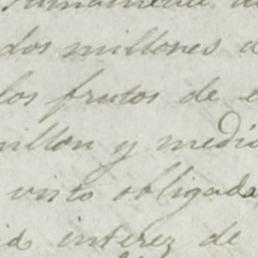 dos millones
los frutos de
millon y medio
visto obligada
interez de